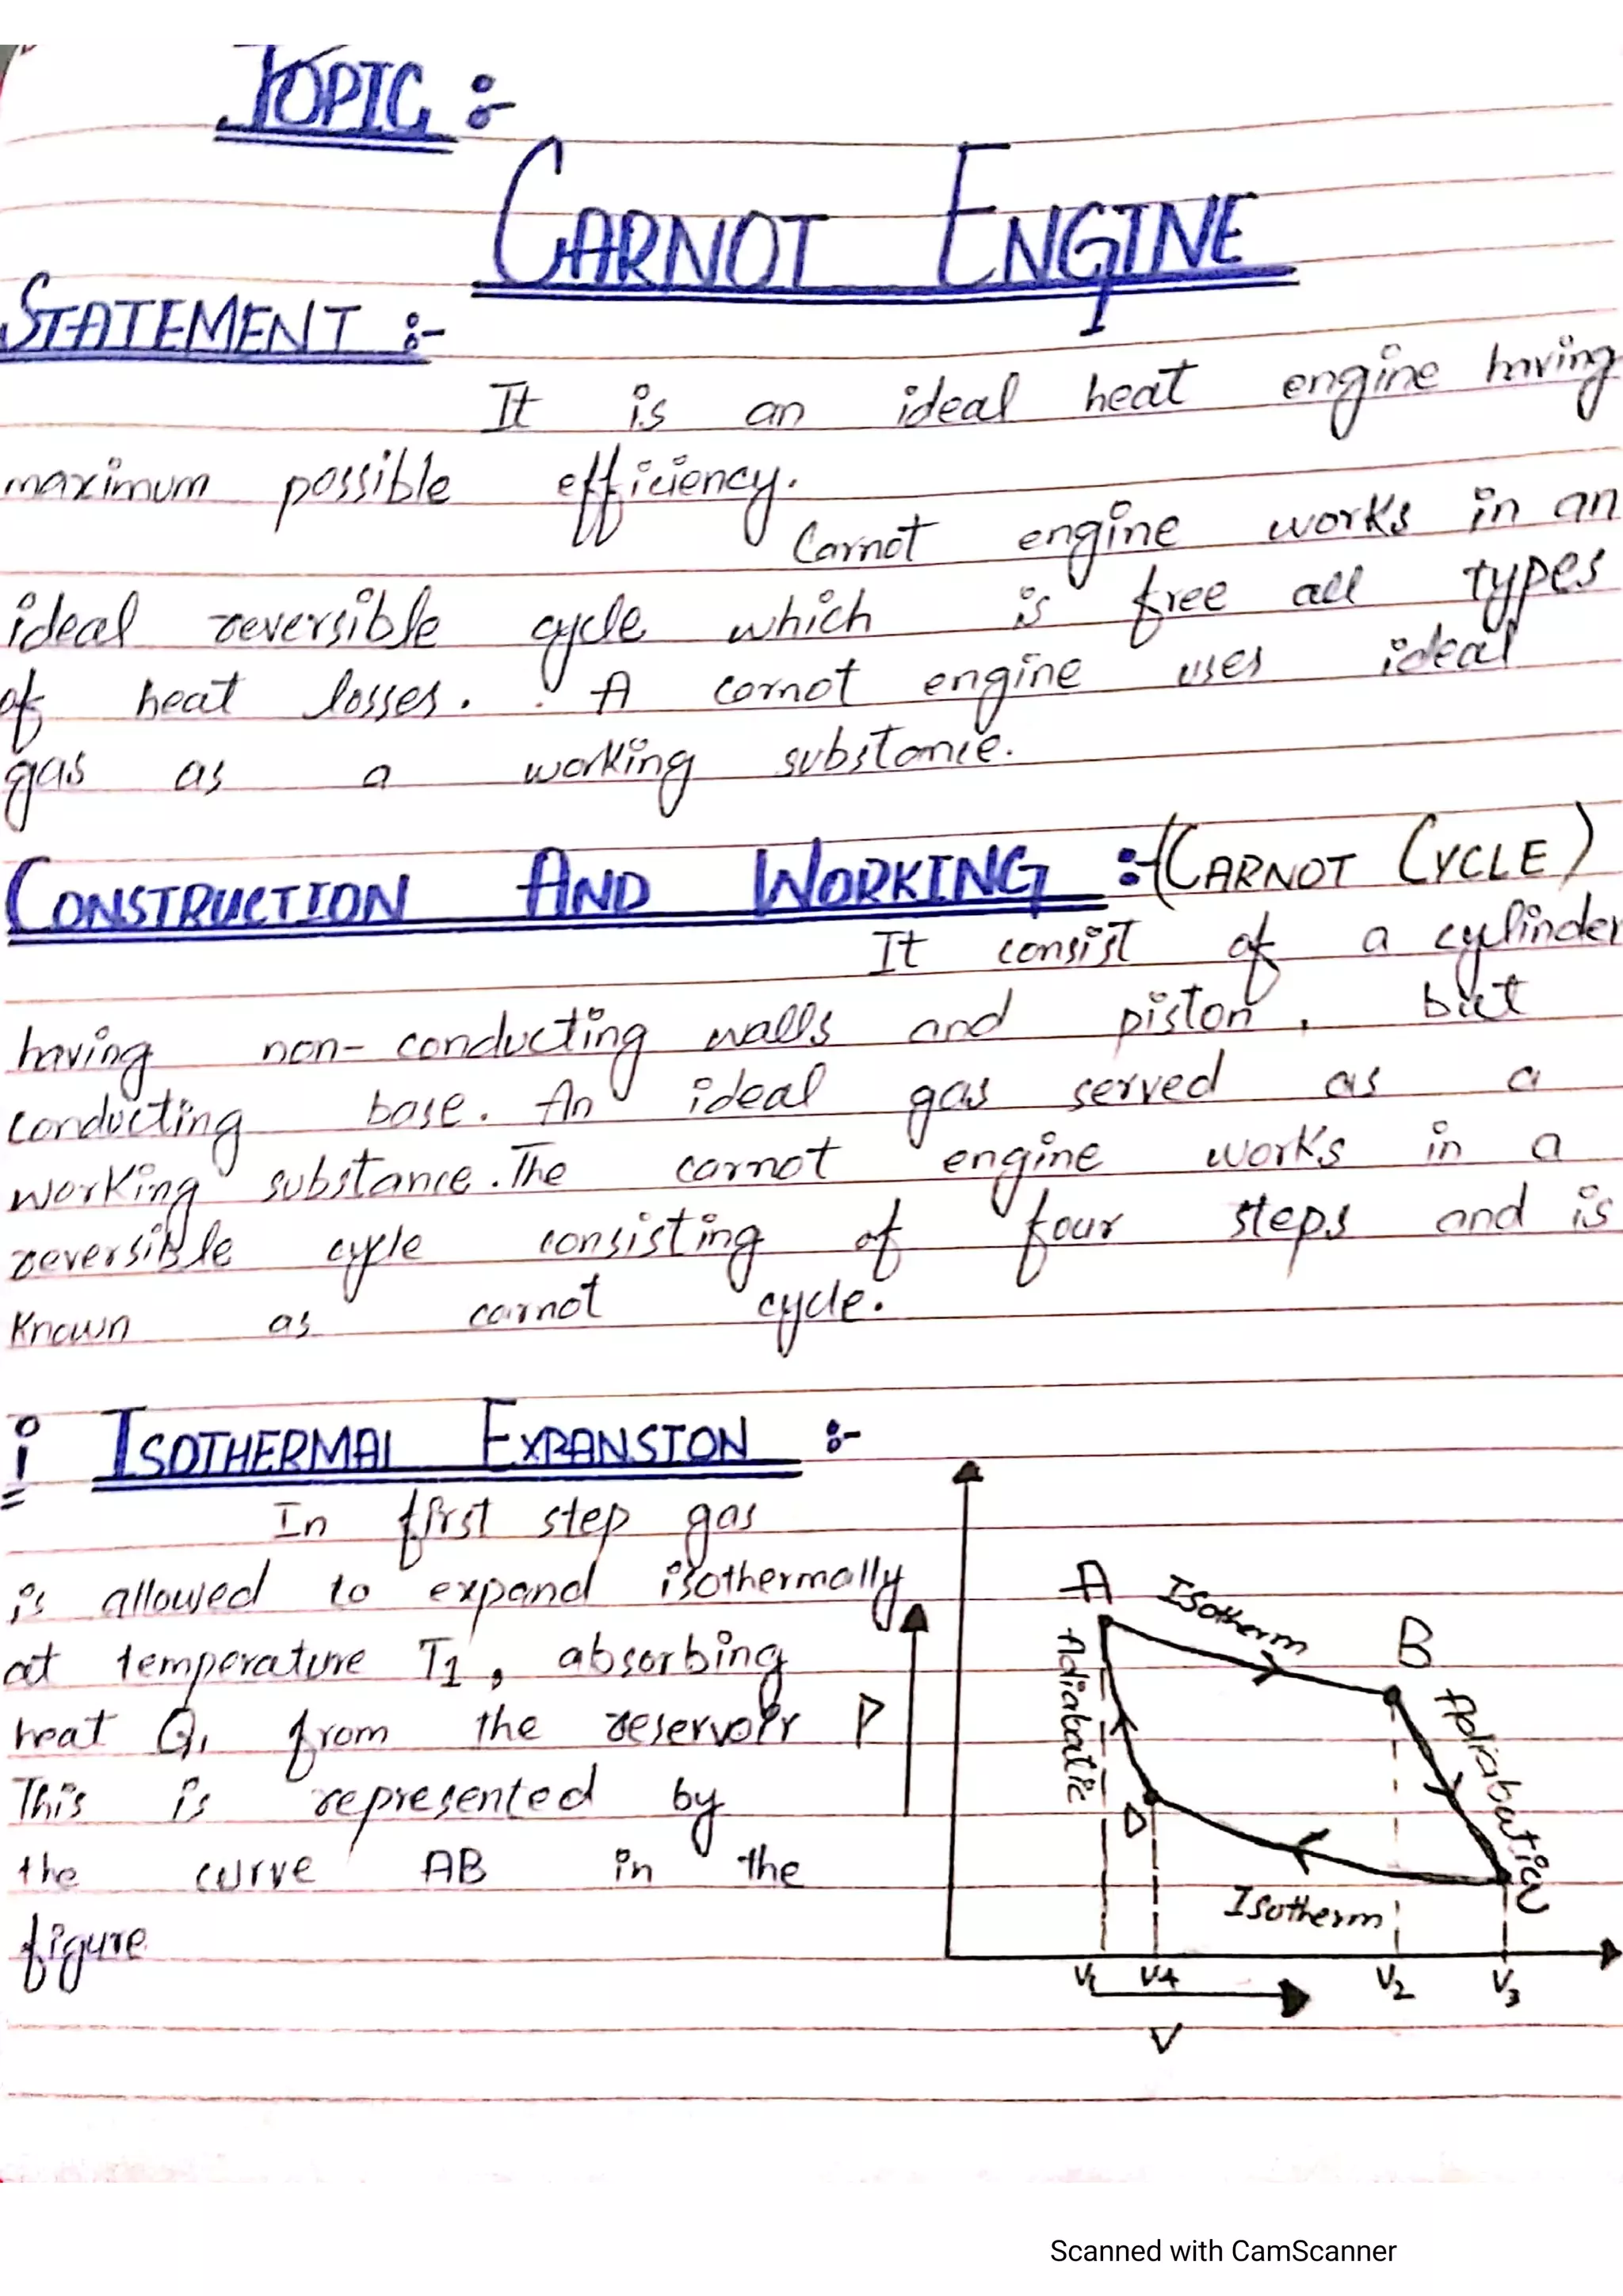 TOPIC :-
CARNOT ENGINE
STATEMENT :-
It is an ideal heat engine having
maximum possible efficiency.
Carnot engine works in an
ideal reversible cycle which is free all types
of heat losses. A carnot engine uses ideal
gas as a working substance.
CONSTRUCTION AND WORKING :- (CARNOT CYCLE)
It consist of a cylinder
having non-conducting walls and piston, but
conducting base. An ideal gas served as a
working substance. The carnot engine works in a
reversible cycle consisting of four steps and is
known as carnot cycle.
i ISOTHERMAL EXPANSION :-
In first step gas
is allowed to expand isothermally
at temperature T1, absorbing
heat Q1 from the reservoir
This is represented by
the curve AB in the
figure
P
A
Isotherm
B
Adiabatic
Adiabatic
D
C
Isotherm
V1 V4 V2 V3
V
Scanned with CamScanner